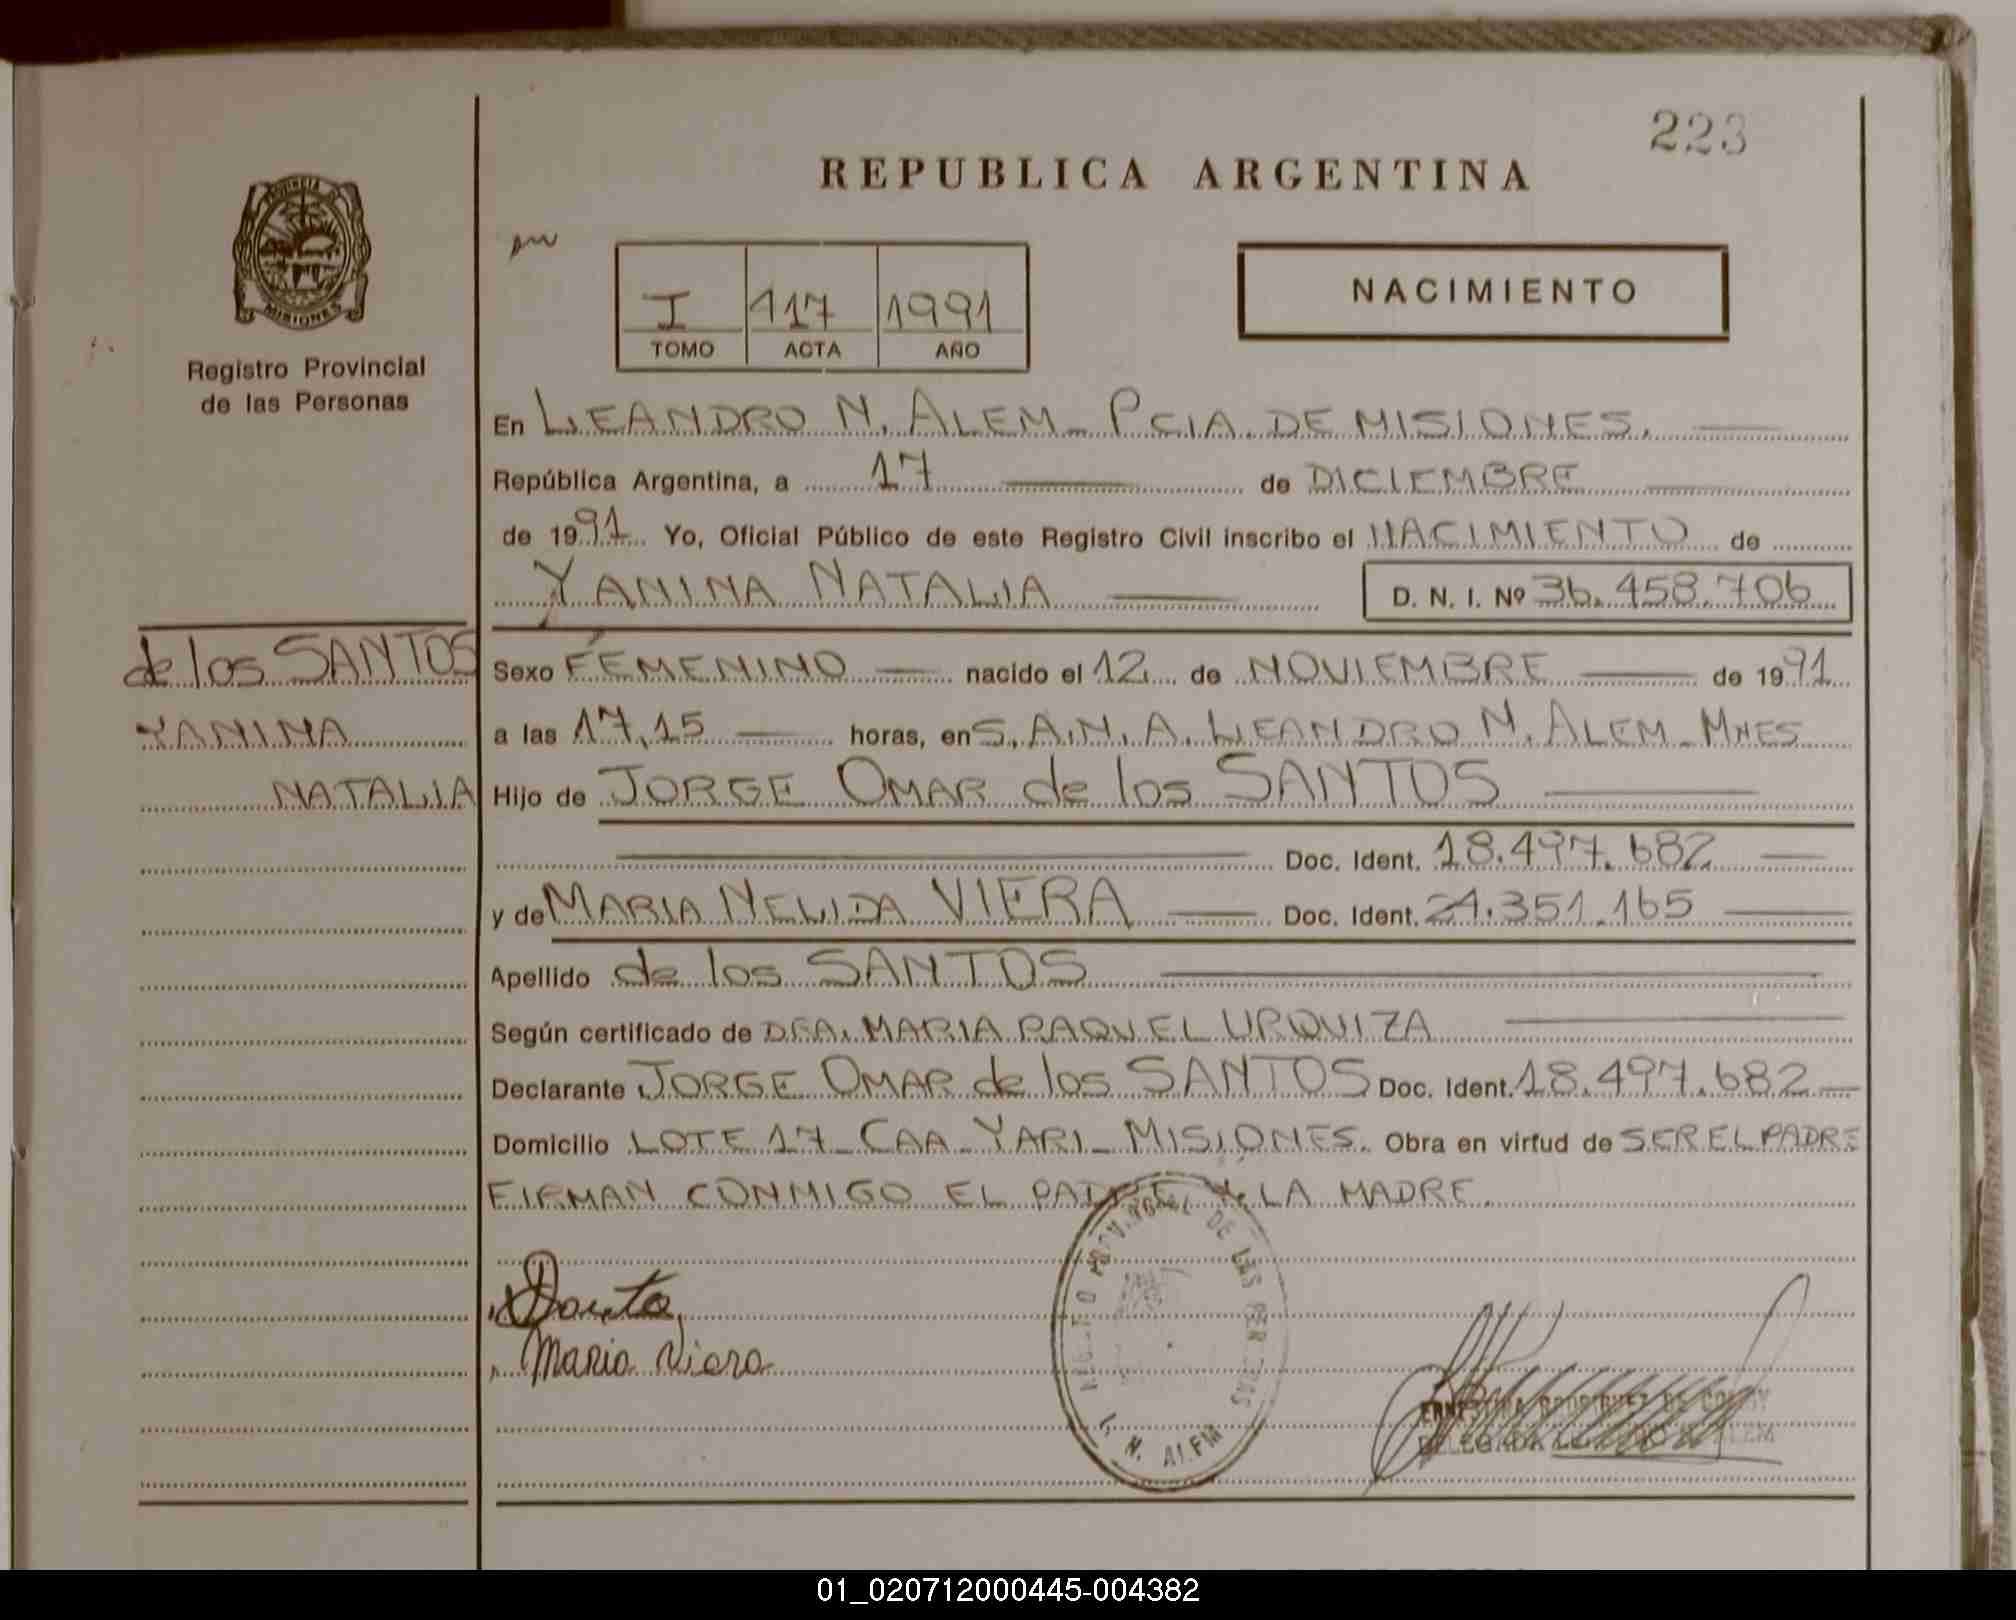 223
REPUBLICA ARGENTINA
PROVINCIA DE
MISIONES
Registro Provincial
de las Personas
I 417 1991
TOMO ACTA AÑO
NACIMIENTO
En LEANDRO N. ALEM - PCIA. DE MISIONES.
República Argentina, a 17 de DICIEMBRE
de 1991 Yo, Oficial Público de este Registro Civil inscribo el NACIMIENTO de
YANINA NATALIA D. N. I. Nº 36.458.706
de los SANTOS
YANINA
NATALIA
Sexo FEMENINO nacido el 12 de NOVIEMBRE de 1991
a las 17,15 horas, en S.A.N.A. LEANDRO N. ALEM - MNES
Hijo de JORGE OMAR de los SANTOS
Doc. Ident. 18.497.682
y de MARIA NELIDA VIERA Doc. Ident. 21.351.165
Apellido de los SANTOS
Según certificado de DRA. MARIA RAQUEL URQUIZA
Declarante JORGE OMAR de los SANTOS Doc. Ident. 18.497.682
Domicilio LOTE 17 - CAA - YARI - MISIONES. Obra en virtud de SER EL PADRE
FIRMAN CONMIGO EL PADRE Y LA MADRE.
Maria Viera
REGISTRO PROVINCIAL DE LAS PERSONAS
L. N. ALEM
RODRIGUEZ DE
DELEGADA LEANDRO N. ALEM
01_020712000445-004382